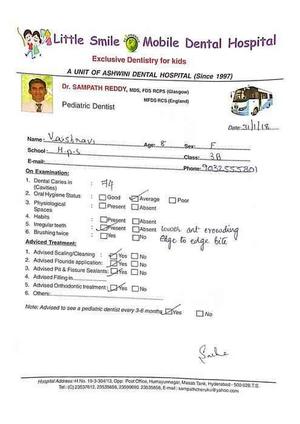 Little Smile Mobile Dental Hospital
Exclusive Dentistry for kids
A UNIT OF ASHWINI DENTAL HOSPITAL (Since 1997)
Dr. SAMPATH REDDY, MDS, FDS RCPS (Glasgow)
MFDS RCS (England)
Pediatric Dentist
Date: 31/1/18
Name: Vaishnavi Age: 8 Sex: F
School: M.p.s Class: 3B
E-mail: Phone: 9032555801
On Examination:
1. Dental Caries in (Cavities) : 74
2. Oral Hygiene Status : Good Average Poor
3. Physiological Spaces : Present Absent
4. Habits : Present Absent
5. Irregular teeth : Present Absent lower ant crowding
6. Brushing twice : Yes No edge to edge bite
Adviced Treatment:
1. Advised Scaling/Cleaning : Yes No
2. Advised Flouride application: Yes No
3. Advised Pit & Fissure Sealants: Yes No
4. Advised Filling in
5. Advised Orthodontic treatment : Yes No
6. Others:
Note: Advised to see a pediatric dentist every 3-6 months Yes No
Hospital Address: H.No. 10-3-304/13, Opp. Post Office, Humayunnagar, Masab Tank, Hyderabad - 500 028.T.S.
Tel: (C) 23537612, 23535658, 23599093, 23535656, E-mail: sampathcheruku@yahoo.com